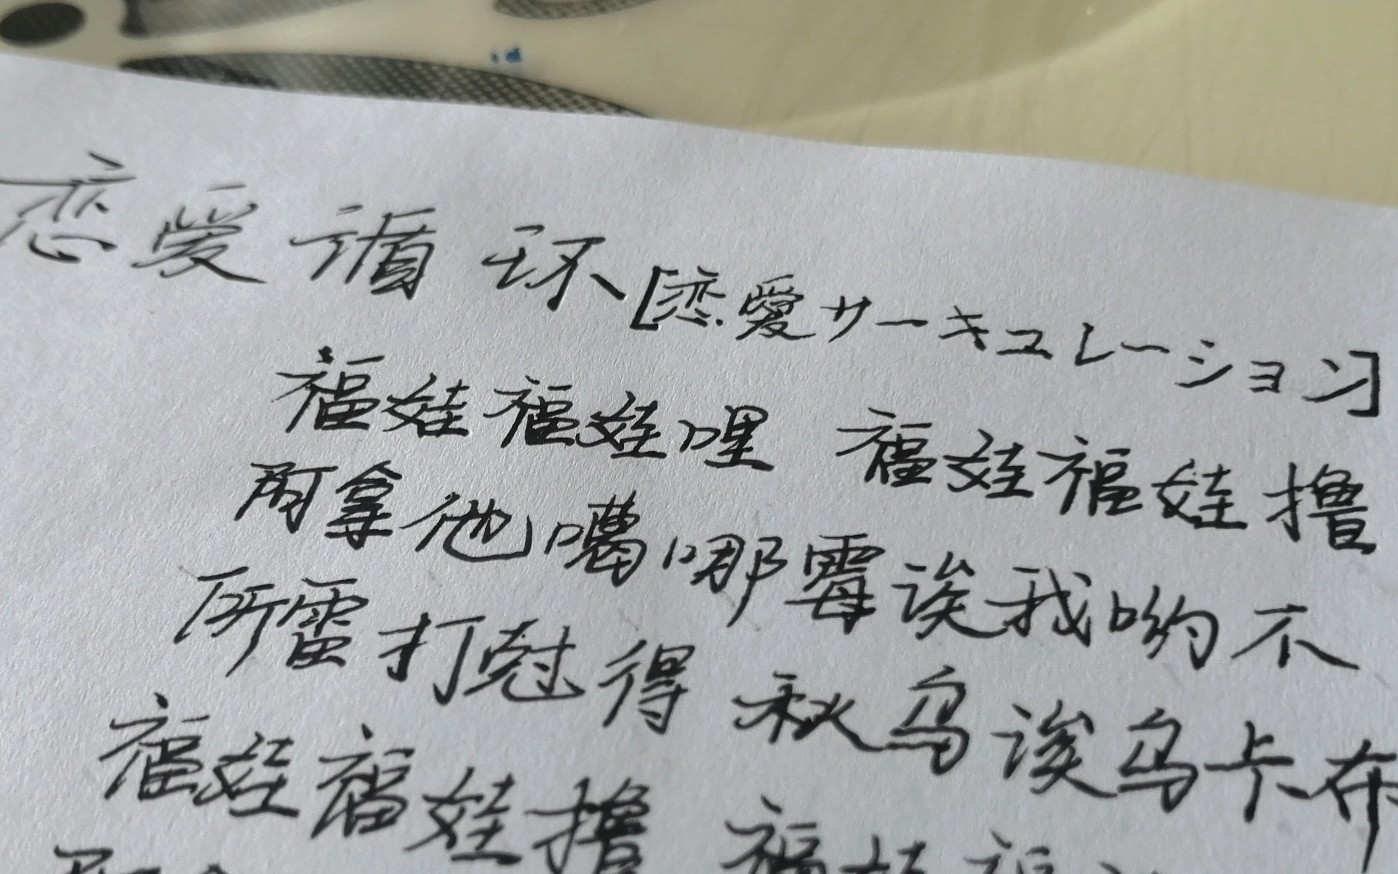 恋爱循环[恋愛サーキュレーション]
福娃福娃哩 福娃福娃撸
阿拿他噶哪霉诶我哟不
所雷打怼得 秋乌诶乌卡布
福娃福娃撸 福娃福